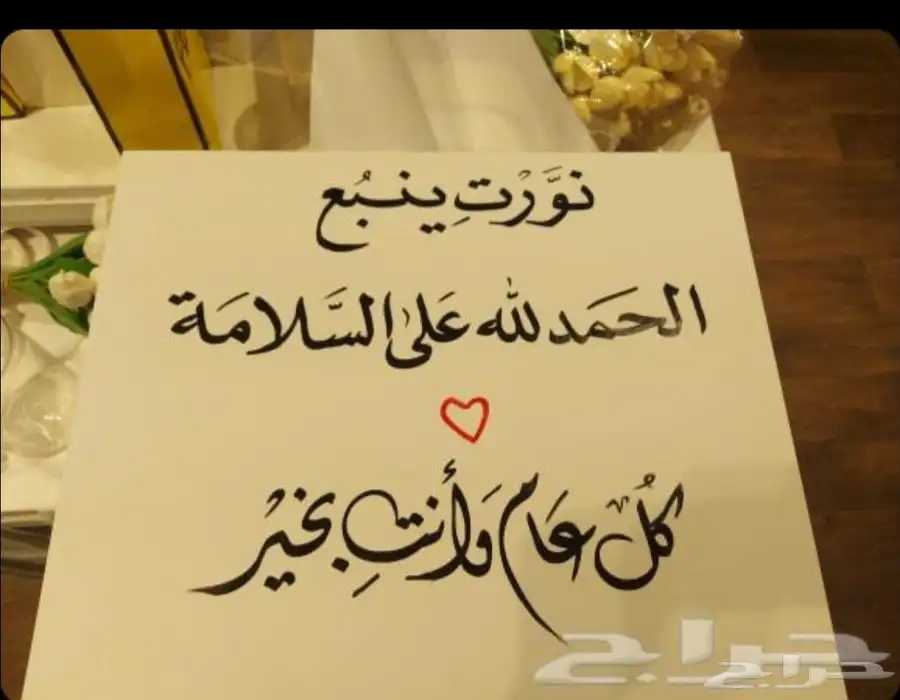 نَوَّرْتِ يَنبُع
الحَمَدلله عَلى السَّلامَة
كُلْ عَام وَأَنتِ بخَيْر
حراج
حراج